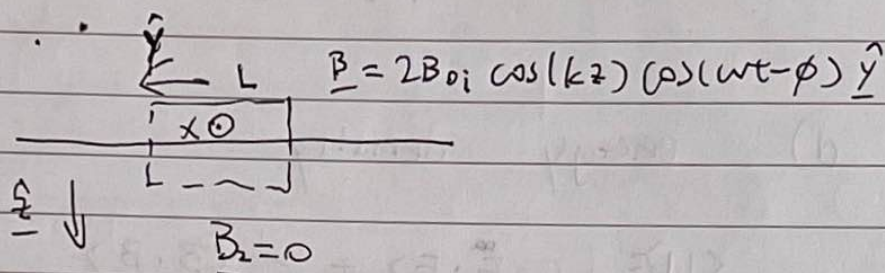 ∴ ŷ
L B = 2B₀ᵢ cos(kz) cos(ωt-φ) ŷ
x⊙
L
ẑ
B₂=0